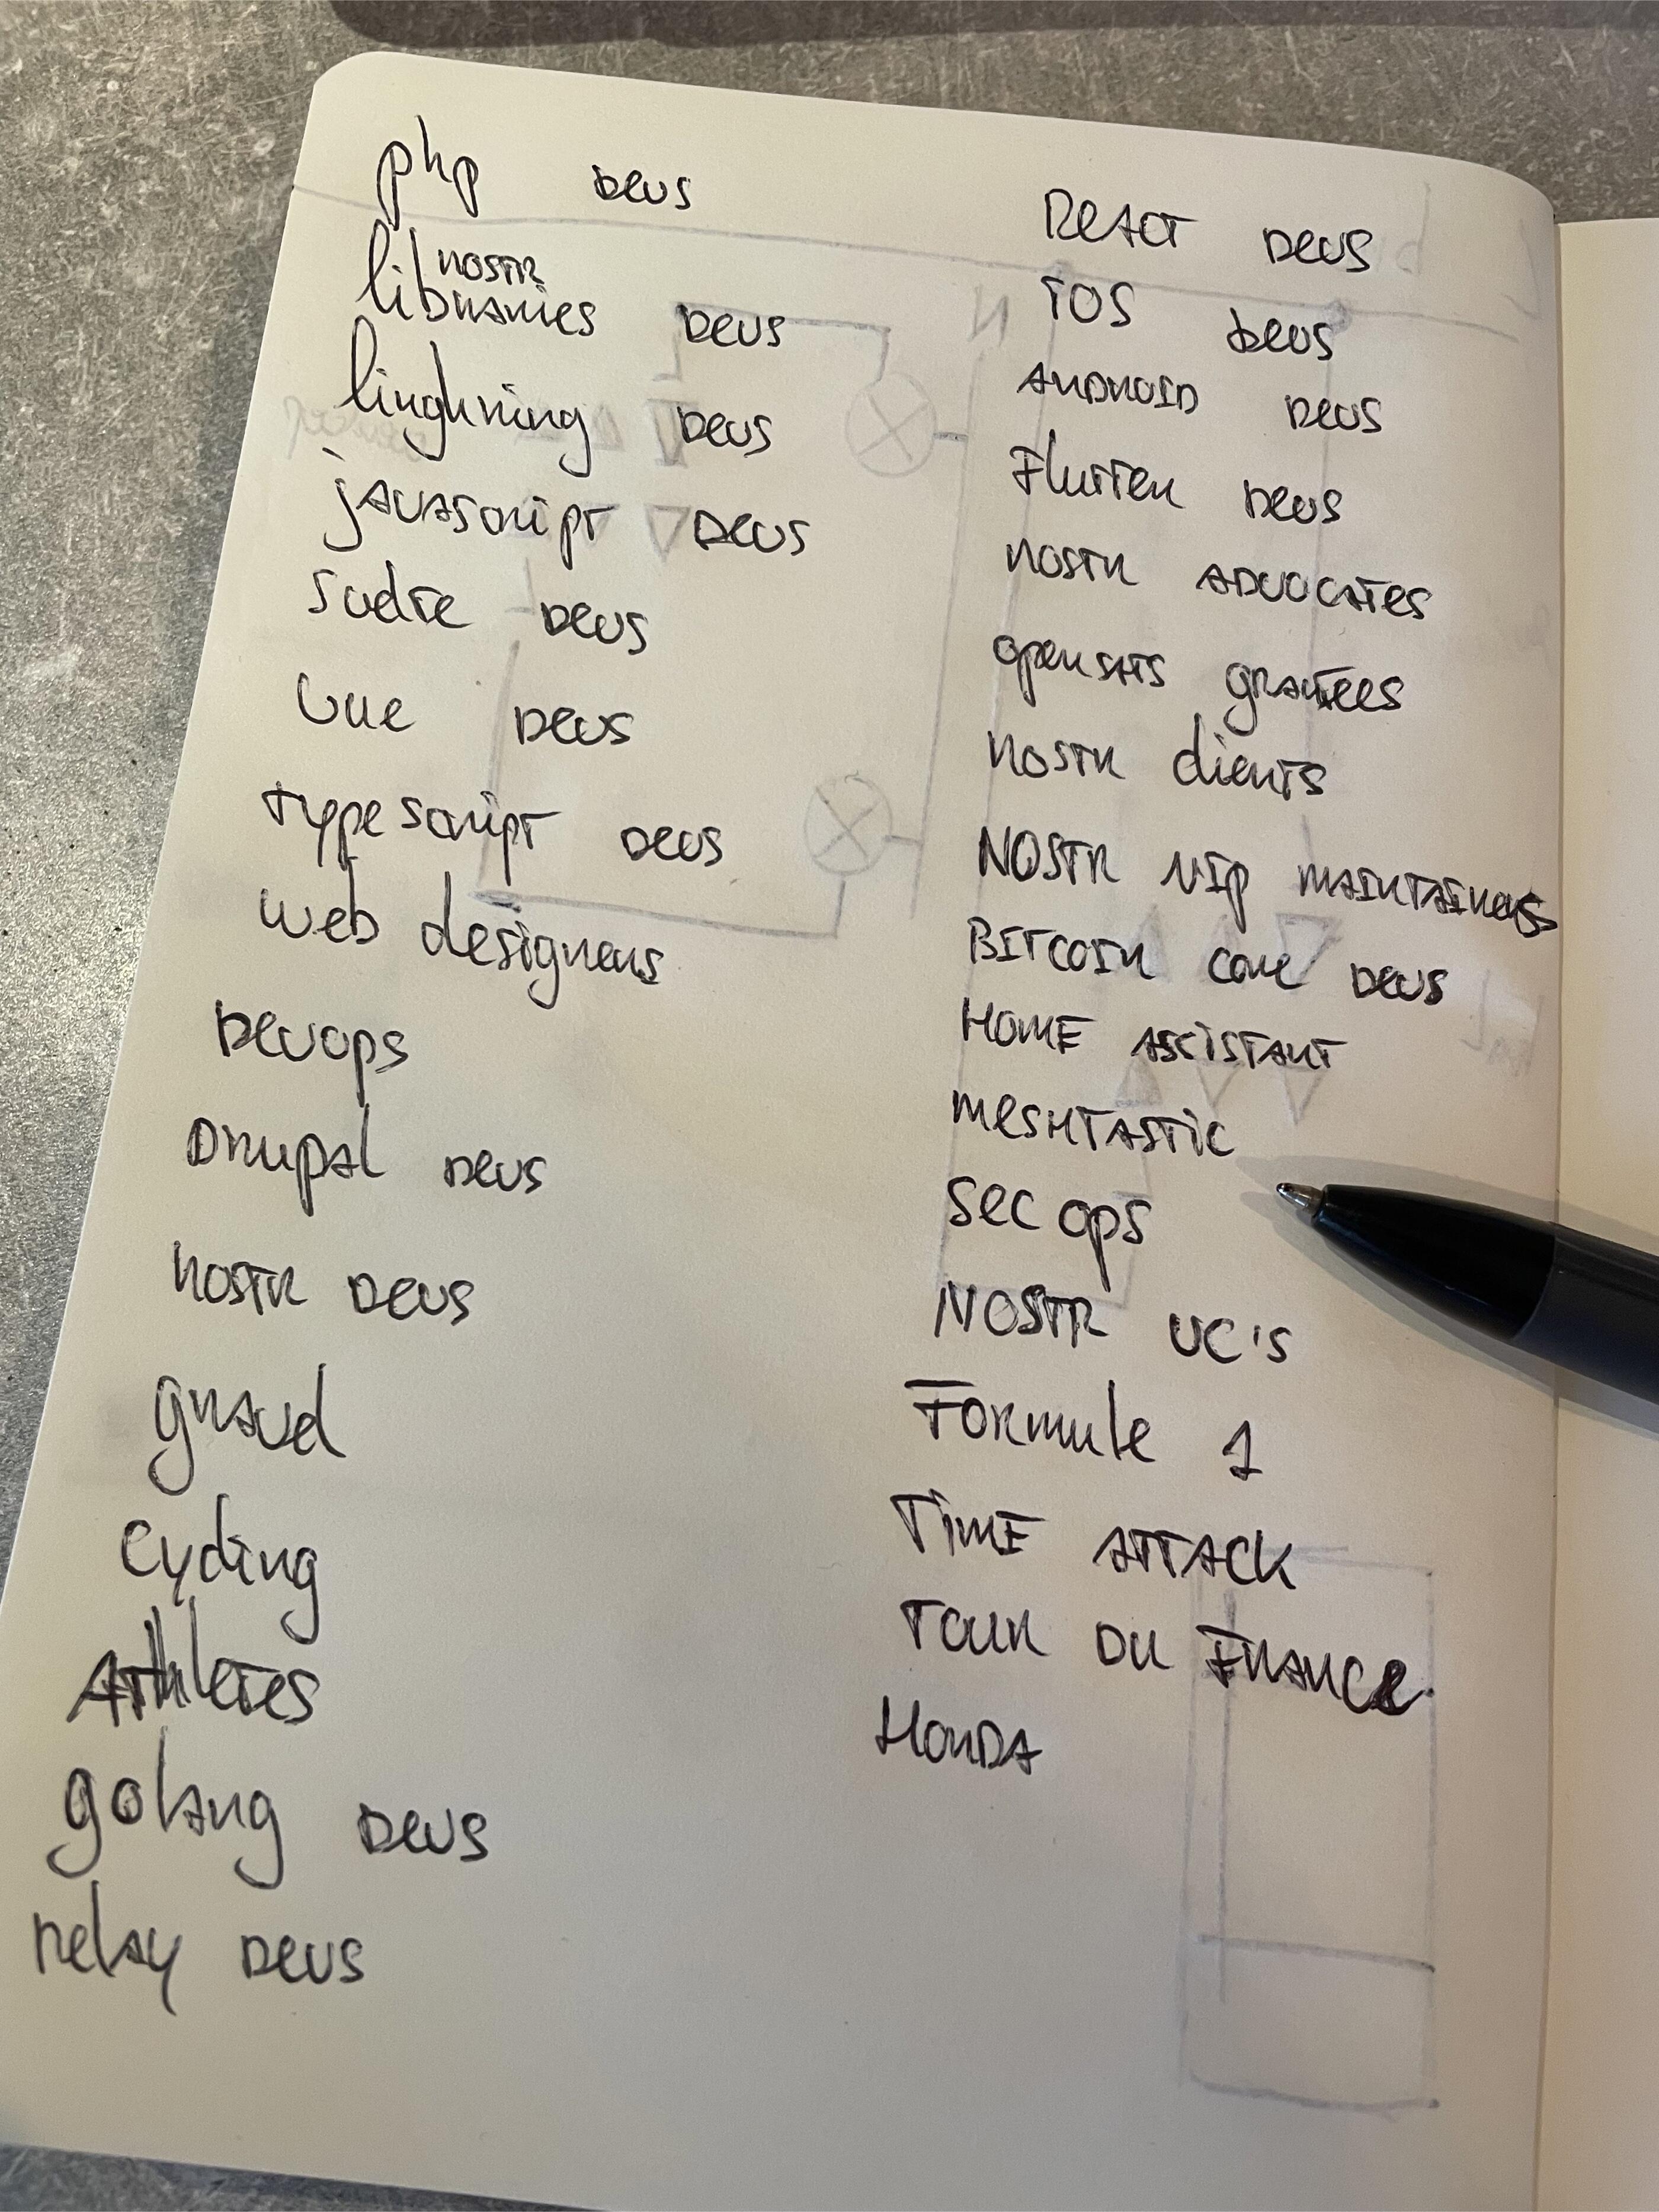 php devs
nostr
libraries devs
linghning devs
javascript devs
svelte devs
vue devs
typescript devs
web designers
Devops
Drupal devs
nostr devs
gravel
cycling
Athletes
golang devs
relay devs
React devs
iOS devs
Android devs
Flutter devs
nostr advocates
opensats grantees
nostr clients
NOSTR NIP maintainers
BITCOIN core devs
HOME ASSISTANT
MESHTASTIC
Sec ops
NOSTR VC's
Formule 1
TIME ATTACK
TOUR DU FRANCE
HONDA